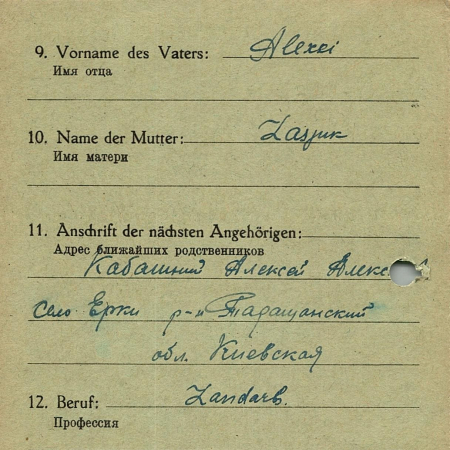 9. Vorname des Vaters: Alexei
Имя отца
10. Name der Mutter:
Имя матери
11. Anschrift der nächsten Angehörigen:
Адрес ближайших родственников
Алексей
село Ерки р-н Таращанский
обл. Киевская
12. Beruf: Landarb.
Профессия